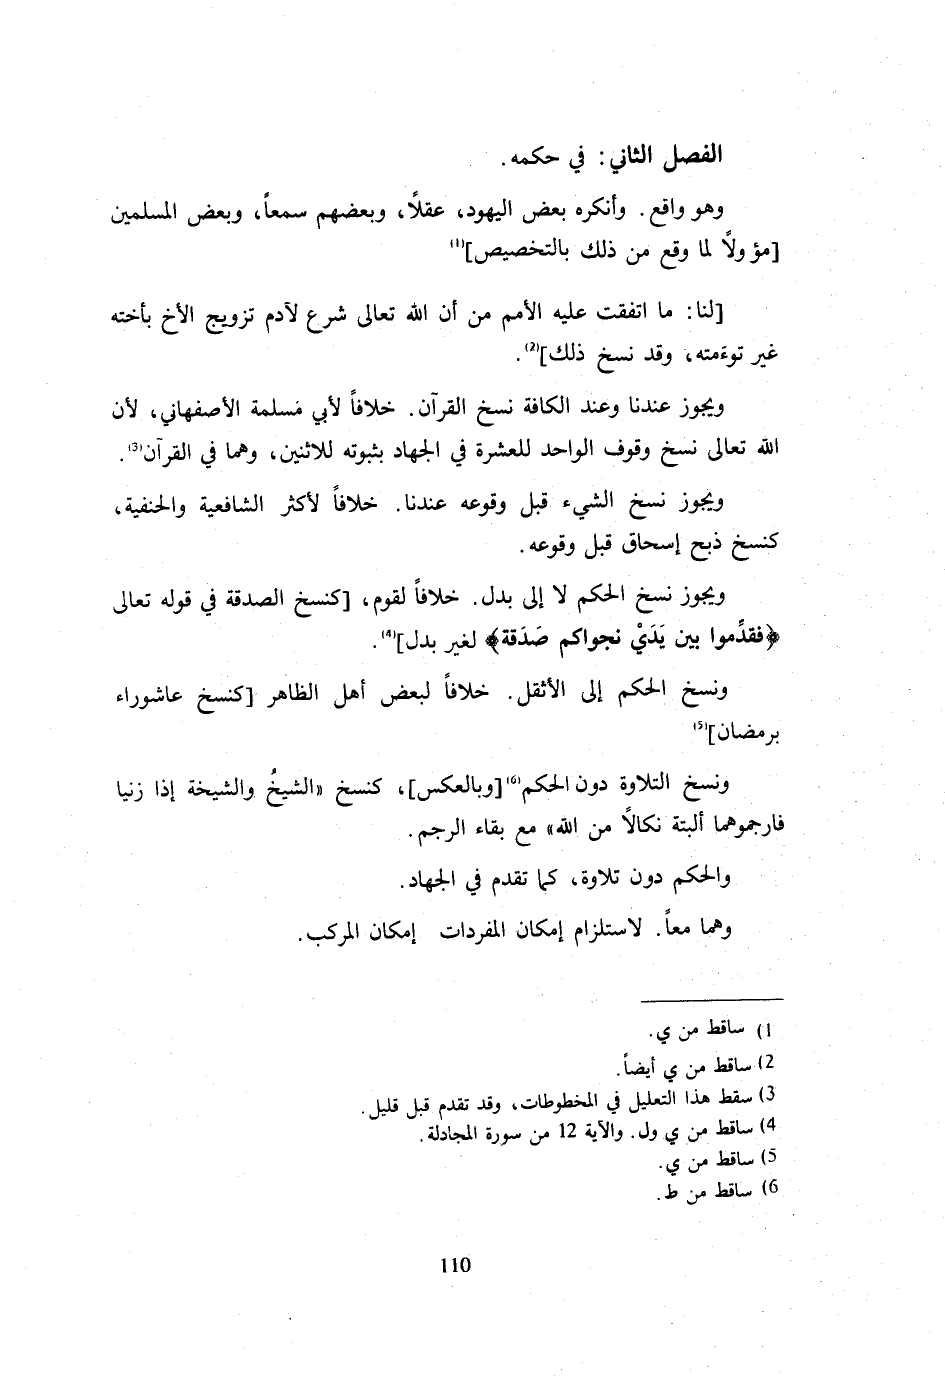 الفصل الثاني: في حكمه.
وهو واقع. وأنكره بعض اليهود، عقلاً، وبعضهم سمعاً، وبعض المسلمين
[مؤولاً لما وقع من ذلك بالتخصيص]⁽¹⁾
[لنا: ما اتفقت عليه الأمم من أن الله تعالى شرع لآدم تزويج الأخ بأخته
غير توءَمته، وقد نسخ ذلك]⁽²⁾.
ويجوز عندنا وعند الكافة نسخ القرآن. خلافاً لأبي مَسلمة الأصفهاني، لأن
الله تعالى نسخ وقوف الواحد للعشرة في الجهاد بثبوته للاثنين، وهما في القرآن⁽³⁾.
ويجوز نسخ الشيء قبل وقوعه عندنا. خلافاً لأكثر الشافعية والحنفية،
كنسخ ذبح إسحاق قبل وقوعه.
ويجوز نسخ الحكم لا إلى بدل. خلافاً لقوم، [كنسخ الصدقة في قوله تعالى
﴿فقدِّموا بين يَدَيْ نجواكم صَدَقة﴾ لغير بدل]⁽⁴⁾.
ونسخ الحكم إلى الأثقل. خلافاً لبعض أهل الظاهر [كنسخ عاشوراء
برمضان]⁽⁵⁾
ونسخ التلاوة دون الحكم⁽⁶⁾[وبالعكس]، كنسخ «الشيخُ والشيخة إذا زنيا
فارجموهما ألبتة نكالاً من الله» مع بقاء الرجم.
والحكم دون تلاوة، كما تقدم في الجهاد.
وهما معاً. لاستلزام إمكان المفردات إمكان المركب.
1) ساقط من ي.
2) ساقط من ي أيضاً.
3) سقط هذا التعليل في المخطوطات، وقد تقدم قبل قليل.
4) ساقط من ي ول. والآية 12 من سورة المجادلة.
5) ساقط من ي.
6) ساقط من ط.
110